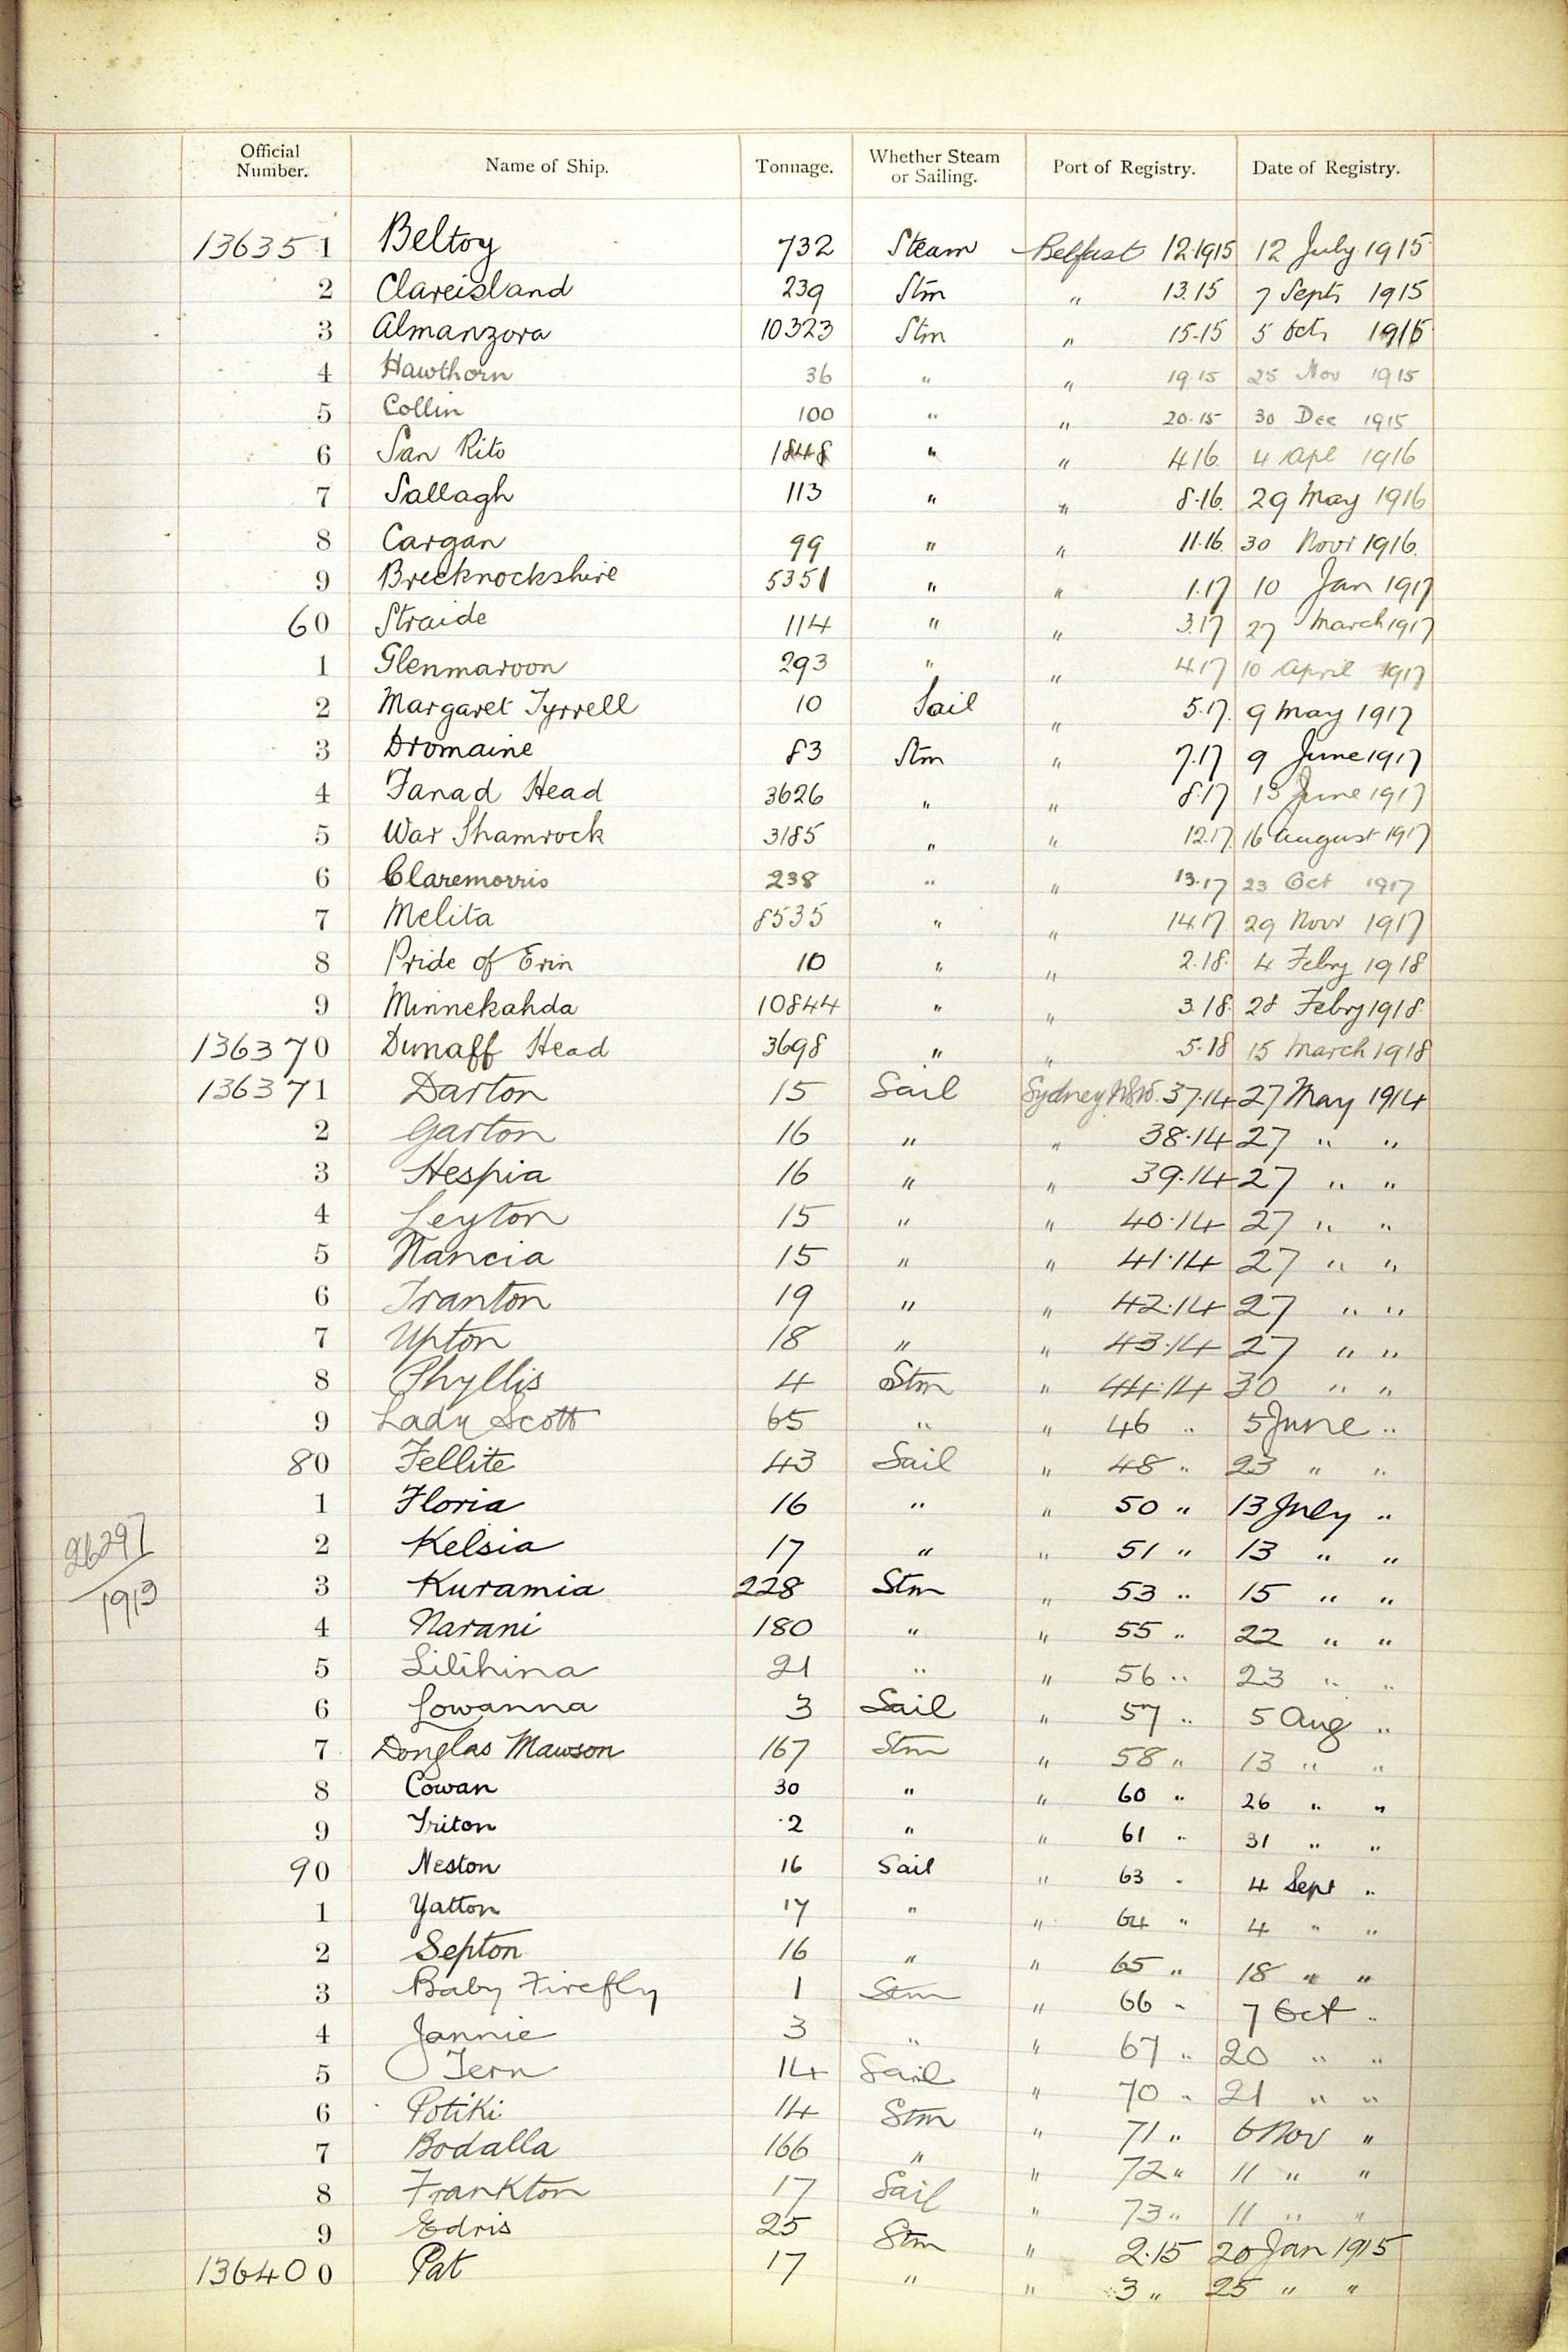 Official Number. Name of Ship. Tonnage. Whether Steam or Sailing. Port of Registry. Date of Registry.
136351 Beltoy 732 Steam Belfast 12.1915 12 July 1915
2 Clareisland 239 Stm " 13.15 7 Sept 1915
3 Almanzora 10323 Stm " 15.15 5 Oct 1915
4 Hawthorn 36 " " 19.15 25 Nov 1915
5 Collin 100 " " 20.15 30 Dec 1915
6 San Rito 1848 " " 4.16 4 Apl 1916
7 Sallagh 113 " " 8.16 29 May 1916
8 Cargan 99 " " 11.16 30 Novr 1916
9 Brecknockshire 5351 " " 1.17 10 Jan 1917
60 Straide 114 " " 3.17 27 March 1917
1 Glenmaroon 293 " " 4.17 10 April 1917
2 Margaret Tyrrell 10 Sail " 5.17 9 May 1917
3 Dromaine 83 Stm " 7.17 9 June 1917
4 Fanad Head 3626 " " 8.17 13 June 1917
5 War Shamrock 3185 " " 12.17 16 August 1917
6 Claremorris 238 " " 13.17 23 Oct 1917
7 Melita 8535 " " 14.17 29 Novr 1917
8 Pride of Erin 10 " " 2.18 4 Febry 1918
9 Minnekahda 10844 " " 3.18 28 Febry 1918
136370 Dunaff Head 3698 " " 5.18 15 March 1918
136371 Darton 15 Sail Sydney NSW. 37.14 27 May 1914
2 Garton 16 " " 38.14 27 " "
3 Hespia 16 " " 39.14 27 " "
4 Leyton 15 " " 40.14 27 " "
5 Nancia 15 " " 41.14 27 " "
6 Tranton 19 " " 42.14 27 " "
7 Upton 18 " " 43.14 27 " "
8 Phyllis 4 Stm " 44.14 30 " "
9 Lady Scott 65 " " 46 " 5 June "
80 Fellite 43 Sail " 48 " 23 " "
1 Floria 16 " " 50 " 13 July "
2 Kelsia 17 " " 51 " 13 " "
26297/1913
3 Kuramia 228 Stm " 53 " 15 " "
4 Narani 180 " " 55 " 22 " "
5 Lilihina 21 " " 56 " 23 " "
6 Lowanna 3 Sail " 57 " 5 Aug "
7 Douglas Mawson 167 Stm " 58 " 13 " "
8 Cowan 30 " " 60 " 26 " "
9 Triton 2 " " 61 " 31 " "
90 Neston 16 Sail " 63 " 4 Sept "
1 Yatton 17 " " 64 " 4 " "
2 Septon 16 " " 65 " 18 " "
3 Baby Firefly 1 Stm " 66 " 7 Oct "
4 Jannie 3 " " 67 " 20 " "
5 Tern 14 Sail " 70 " 21 " "
6 Potiki 14 Stm " 71 " 6 Nov "
7 Bodalla 166 " " 72 " 11 " "
8 Frankton 17 Sail " 73 " 11 " "
9 Edris 25 Stm " 2.15 20 Jan 1915
136400 Pat 17 " " 3 " 25 " "